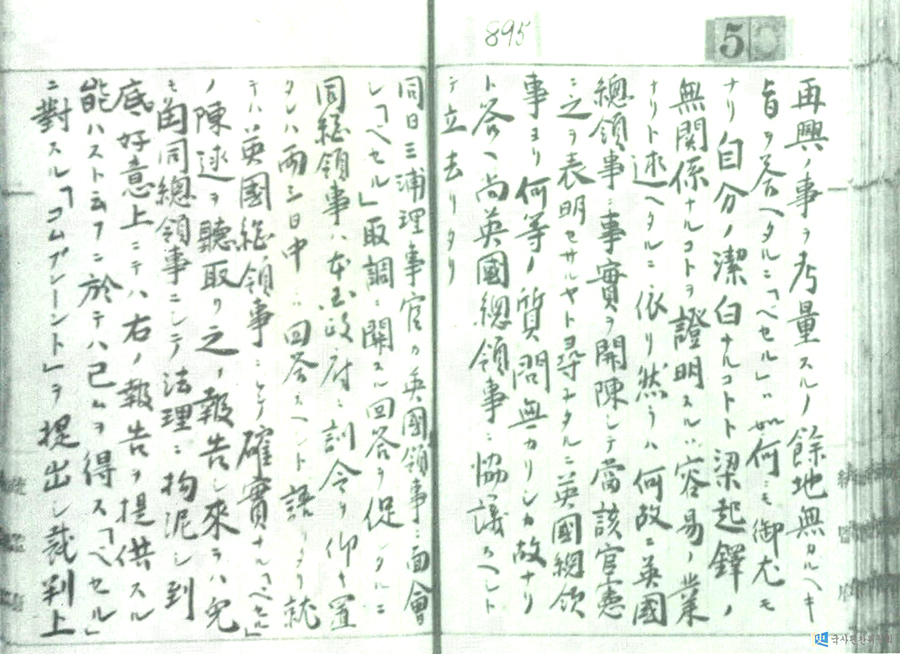 895
50
再興ノ事ヲ考量スルノ餘地無カルヘキ
旨ヲ答ヘタルニ「ベセル」ハ如何ニモ御尤モ
ナリ自分ノ潔白ナルコトト梁起鐸ノ
無關係ナルコトヲ證明スルハ容易ノ業
ナリト述ヘタルニ依リ然ラハ何故ニ英國
總領事ニ事實ヲ開陳シテ當該官憲
ニ之ヲ表明セサルヤト尋ネタルニ英國總領
事ヨリ何等ノ質問無カリシカ故ナリ
ト答ヘ尚英國總領事ニ協議スヘシト
テ立去リタリ
同日三浦理事官カ英國領事ニ面會
シ「ベセル」取調ニ關スル回答ヲ促シタルニ
同總領事ハ本國政府ニ訓令ヲ仰キ置
タレハ兩三日中ニハ回答スヘシト語リタリ就
テハ英國總領事ニシテ確實ナル「ベセル」
ノ陳述ヲ聽取リ之ヲ報告シ來ラハ兎
モ角同總領事ニシテ法理ニ拘泥シ到
底好意上ニテハ右ノ報告ヲ提供スル
能ハスト云フニ於テハ已ムヲ得ス「ベセル」
ニ對スル「コムプレーント」ヲ提出シ裁判上
국사편찬위원회